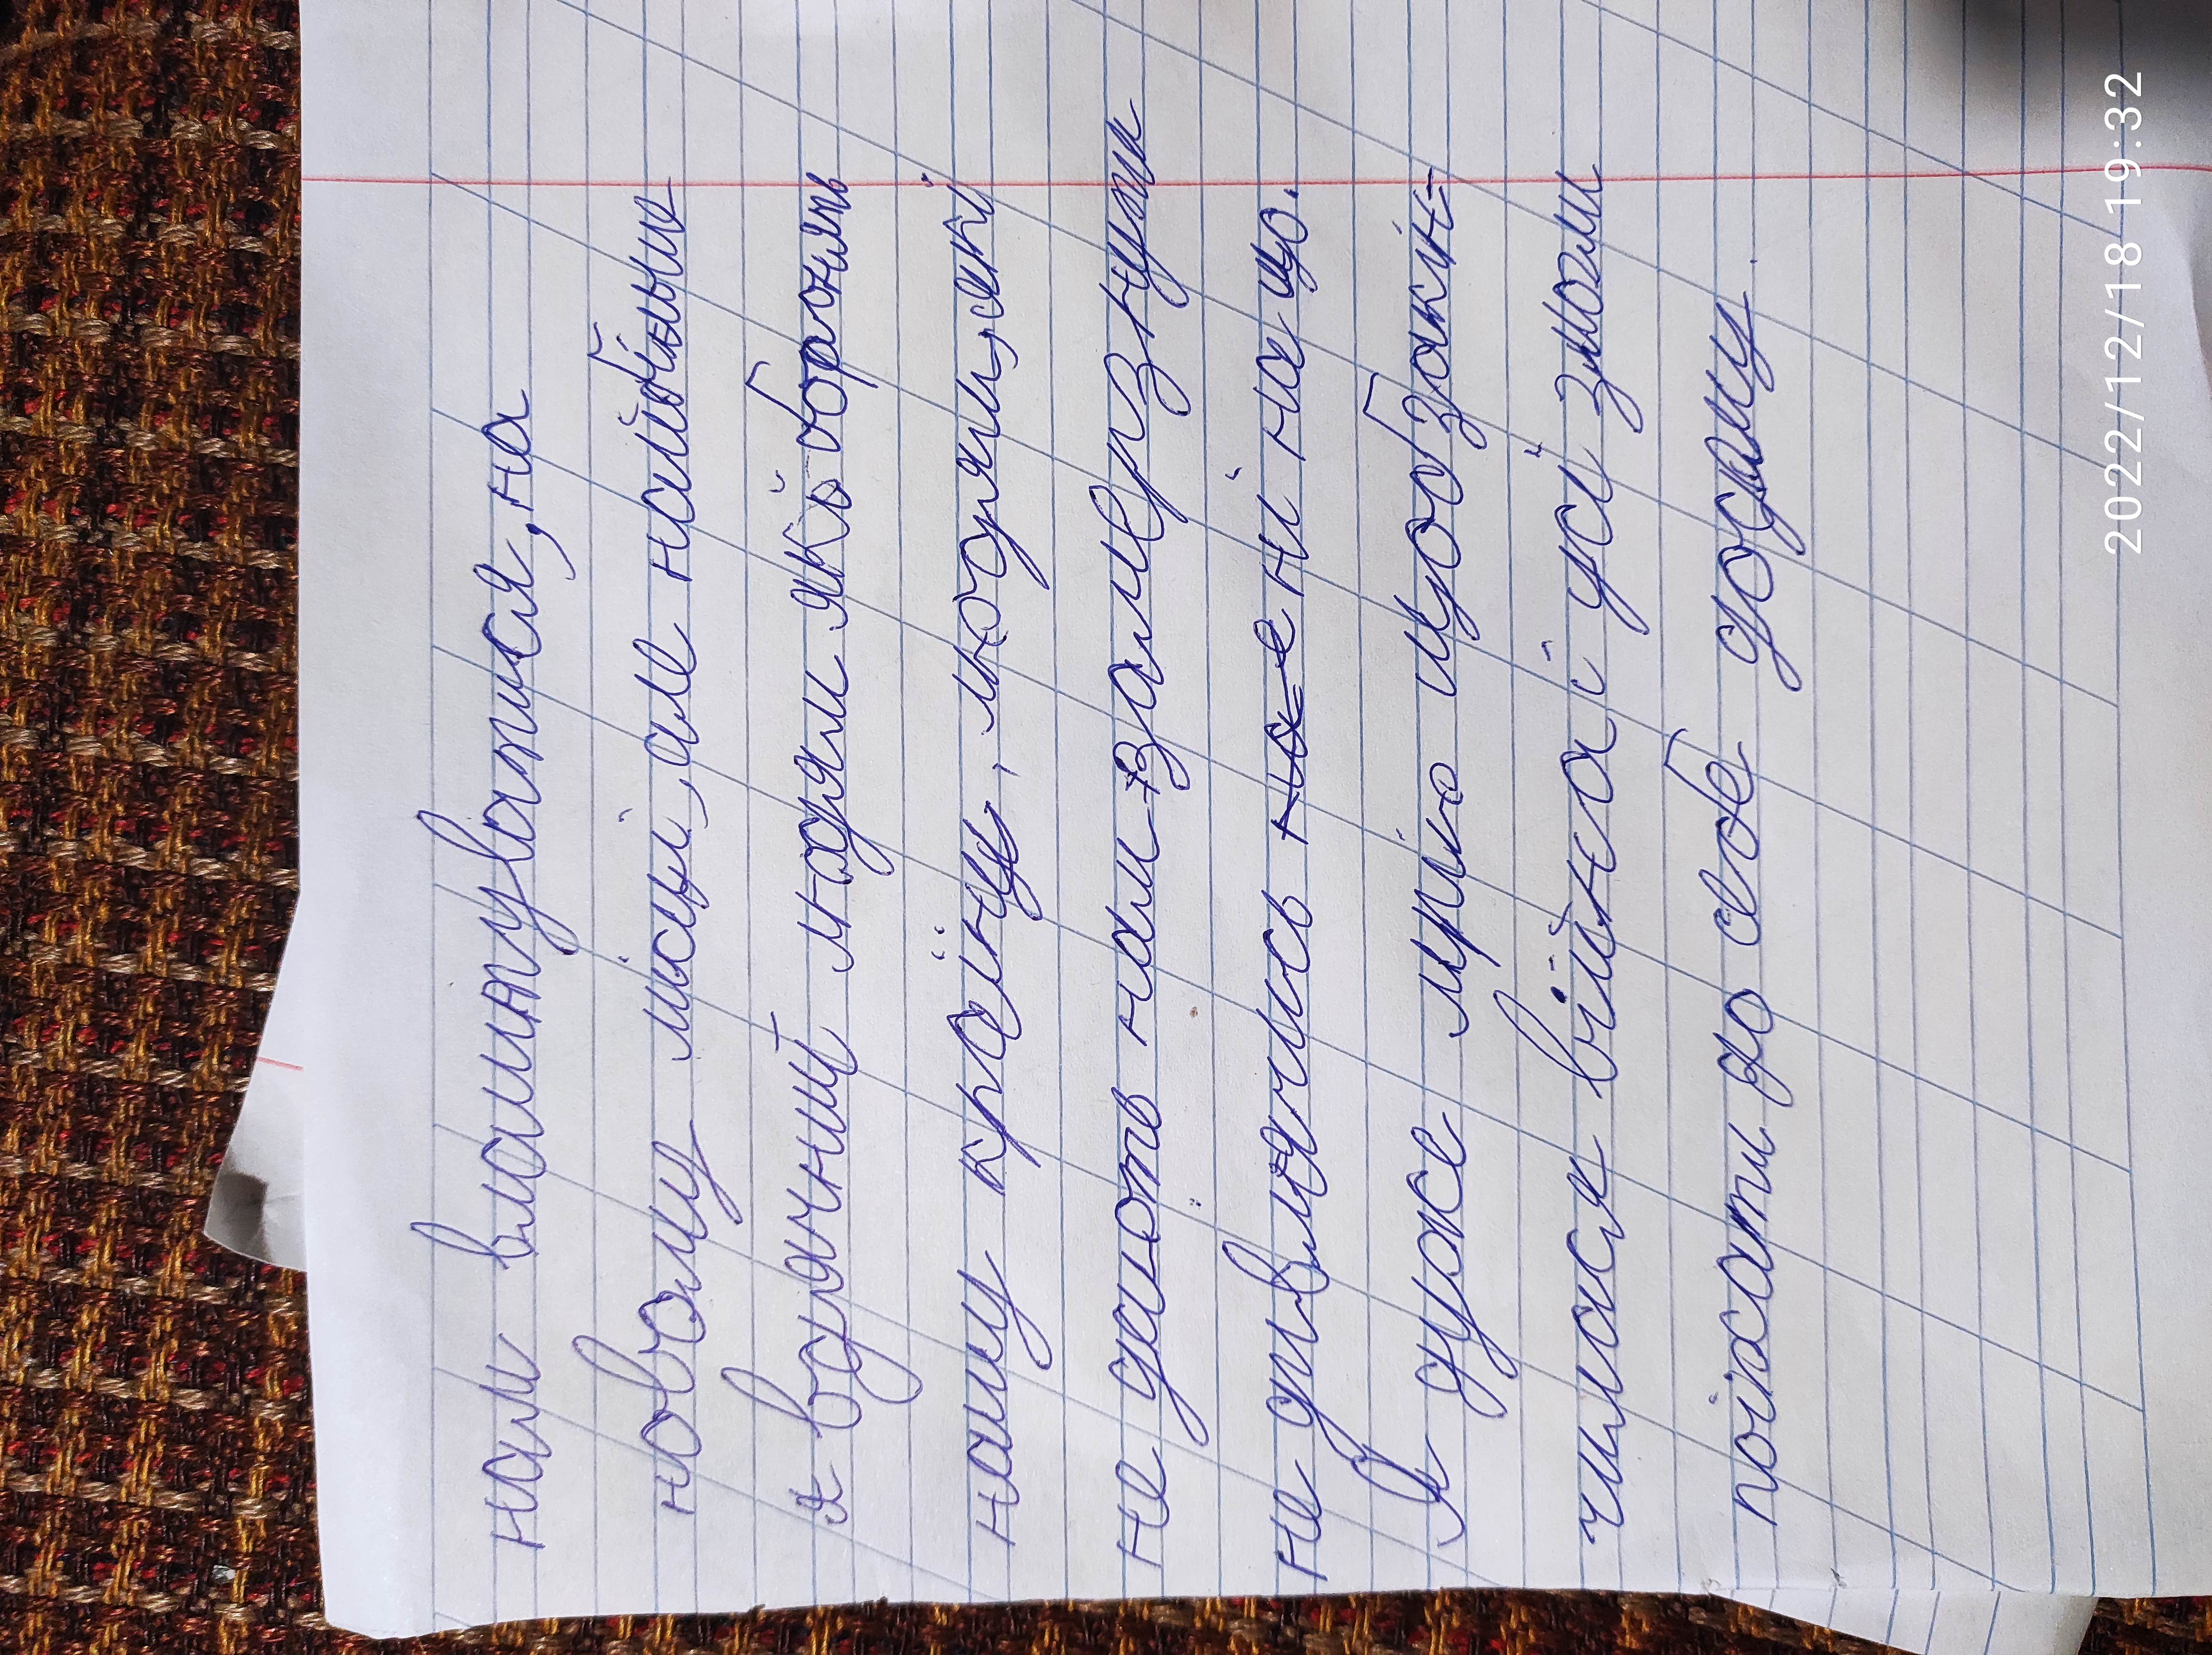 нам влаштуватися, на
новому місці, але найбільше
я вдячний людям які боронять
нашу країну, людям, які
не дають нам замерзнути
не дивлячись ні на що.
Я дуже мрію щоб закін-
чилася війна і усі змогли
поїхати до себе додому.
2022/12/18 19:32